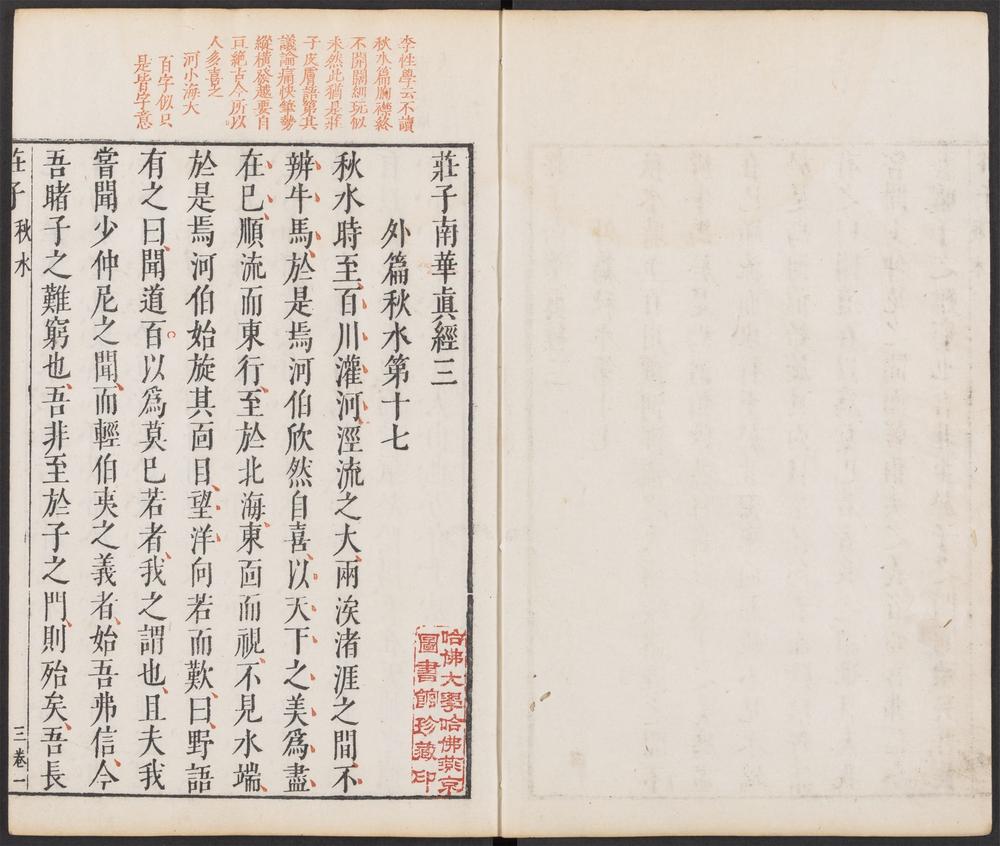 李性學云不讀
秋水篇胸襟終
不開闊細玩似
未然此猶是莊
子皮膚語第其
議論痛快筆勢
縱橫發越要自
亘絶古今所以
人多喜之
河小海大
百字似只
是皆字意
莊子南華眞經三
外篇秋水第十七
秋水時至、百川灌河、涇流之大、兩涘渚涯之間、不
辨牛馬、於是焉河伯欣然自喜、以天下之美爲盡
在巳、順流而東行、至於北海、東面而視、不見水端、
於是焉河伯始旋其面目、望洋向若而歎、曰、野語
有之曰、聞道百。以爲莫巳若者、我之謂也、且夫我
嘗聞少仲尼之聞、而輕伯夷之義者、始吾弗信、今
吾睹子之難窮也、吾非至於子之門、則殆矣、吾長
莊子 秋水
三卷一
哈佛大學哈佛燕京
圖書館珍藏印